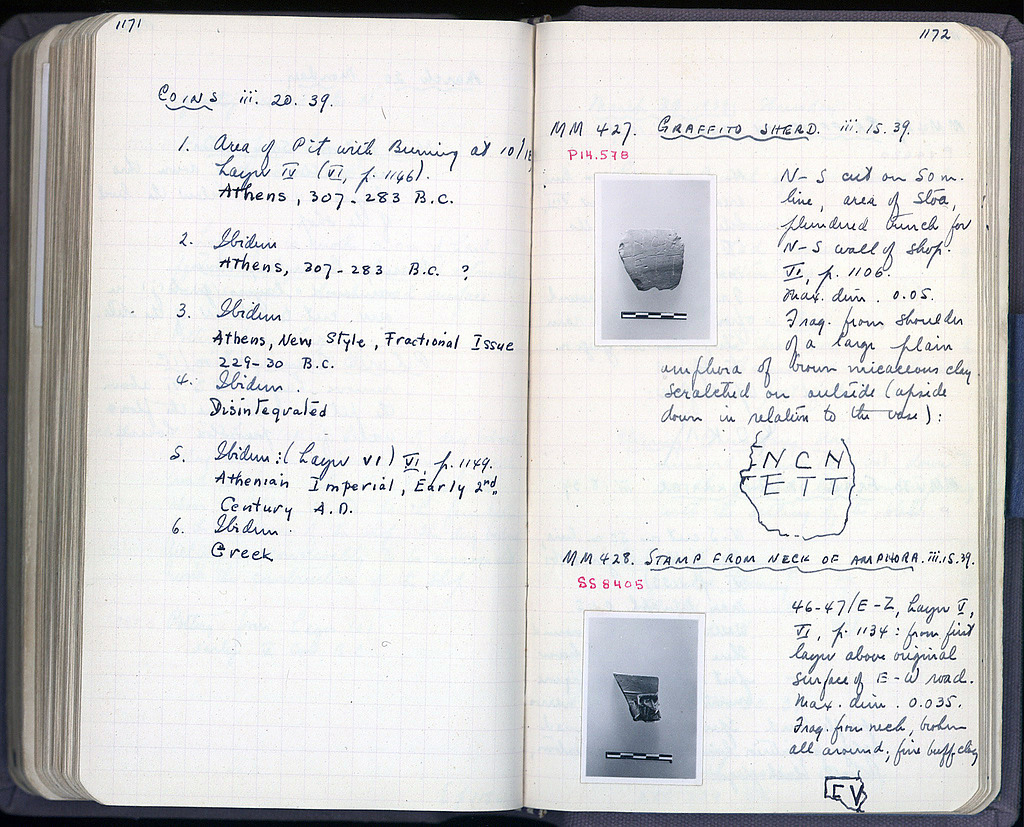 1171
COINS iii. 20. 39.
1. Area of Pit with Burning at 10/
Layer IV (VI, p. 1146).
Athens, 307-283 B.C.
2. Ibidem
Athens, 307-283 B.C. ?
3. Ibidem
Athens, New Style, Fractional Issue
229-30 B.C.
4. Ibidem.
Disintegrated
5. Ibidem: (Layer VI) VI, p. 1149.
Athenian Imperial, Early 2nd
Century A.D.
6. Ibidem.
Greek
1172
MM 427. GRAFFITO SHERD. iii. 15. 39.
P14.578
N-S cut on 50 m.
line, area of Stoa,
plundered trench for
N-S wall of shop.
VI, p. 1106.
Max. dim. 0.05.
Frag. from shoulder
of a large plain
amphora of brown micaceous clay.
scratched on outside (upside
down in relation to the vase):
NCN
ETT
MM 428. STAMP FROM NECK OF AMPHORA. iii. 15. 39.
SS 8405
46-47/E-Z, Layer V,
VI, p. 1134: from first
layer above original
surface of E-W road.
Max. dim. 0.035.
Frag. from neck, broken
all around; fine buff clay
EV